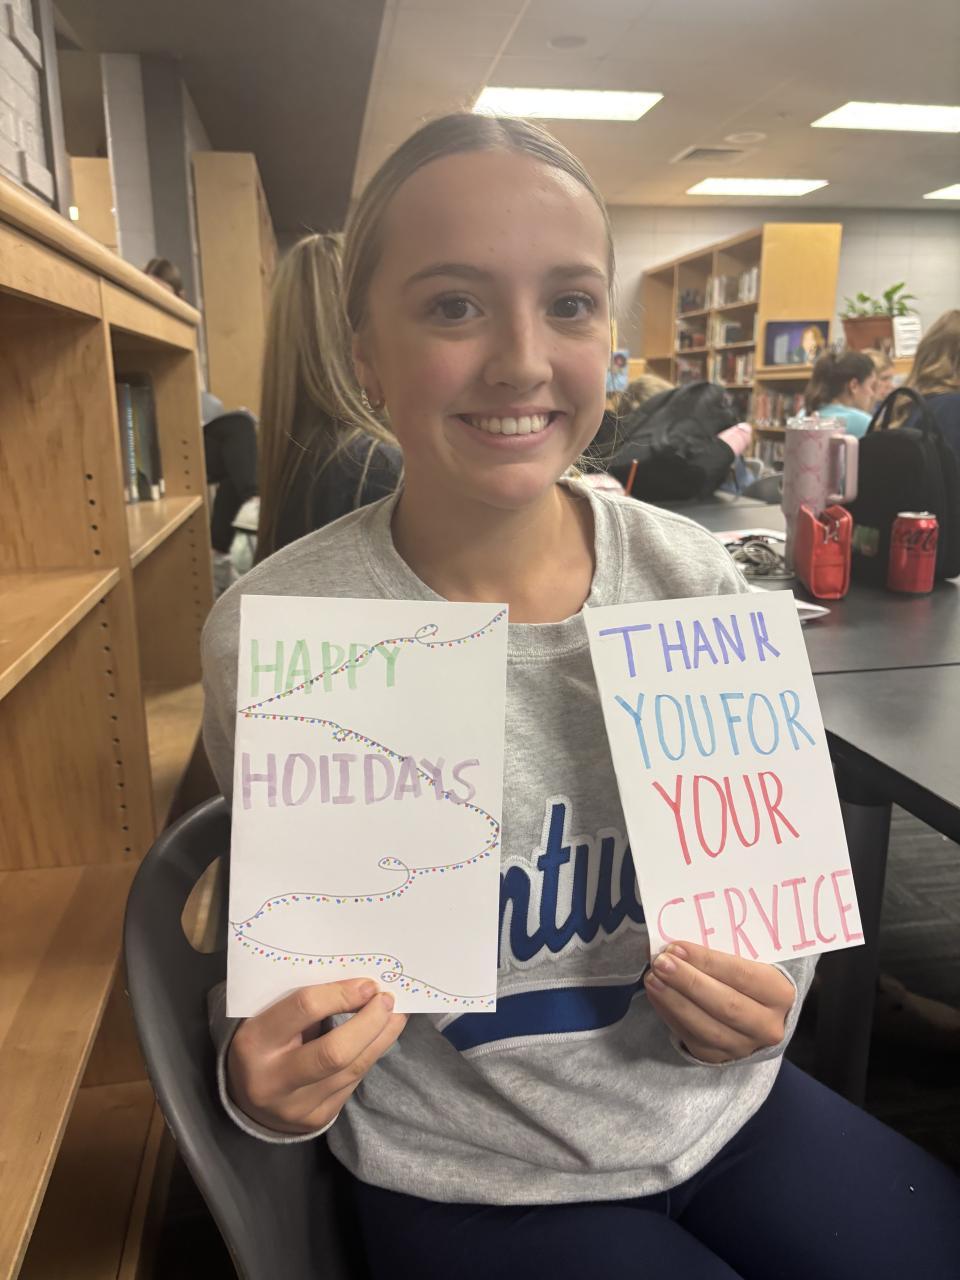 HAPPY
HOLIDAYS
THANK
YOU FOR
YOUR
SERVICE
ntuc